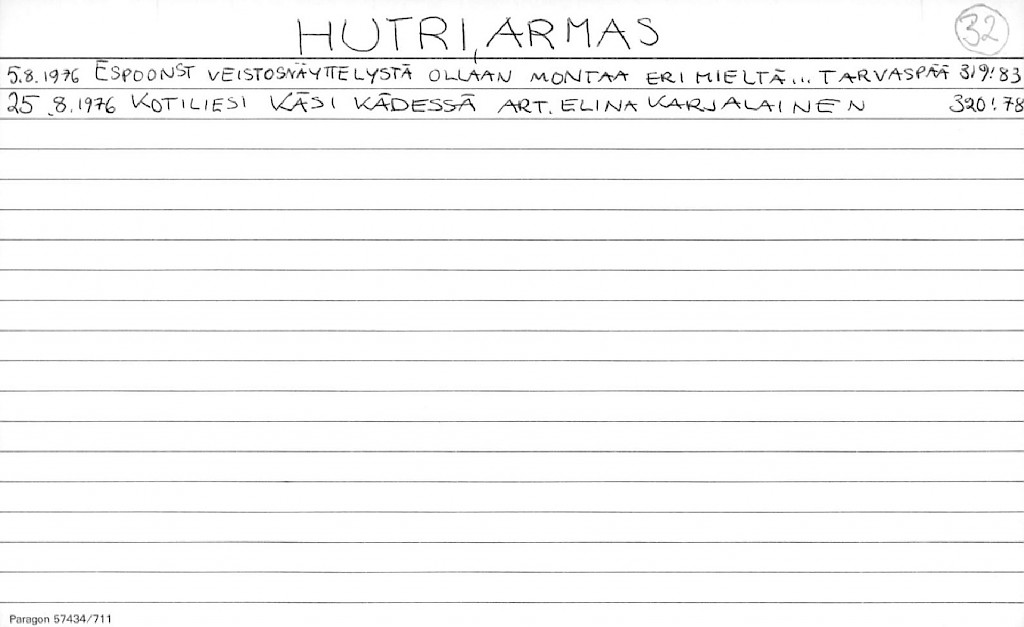 HUTRI, ARMAS
32
5.8.1976 ESPOONST VEISTOSNÄYTTELYSTÄ OLLAAN MONTAA ERI MIELTÄ... TARVASPÄÄ 319:83
25.8.1976 KOTILIESI KÄSI KÄDESSÄ ART. ELINA KARJALAINEN 320:78
Paragon 57434/711